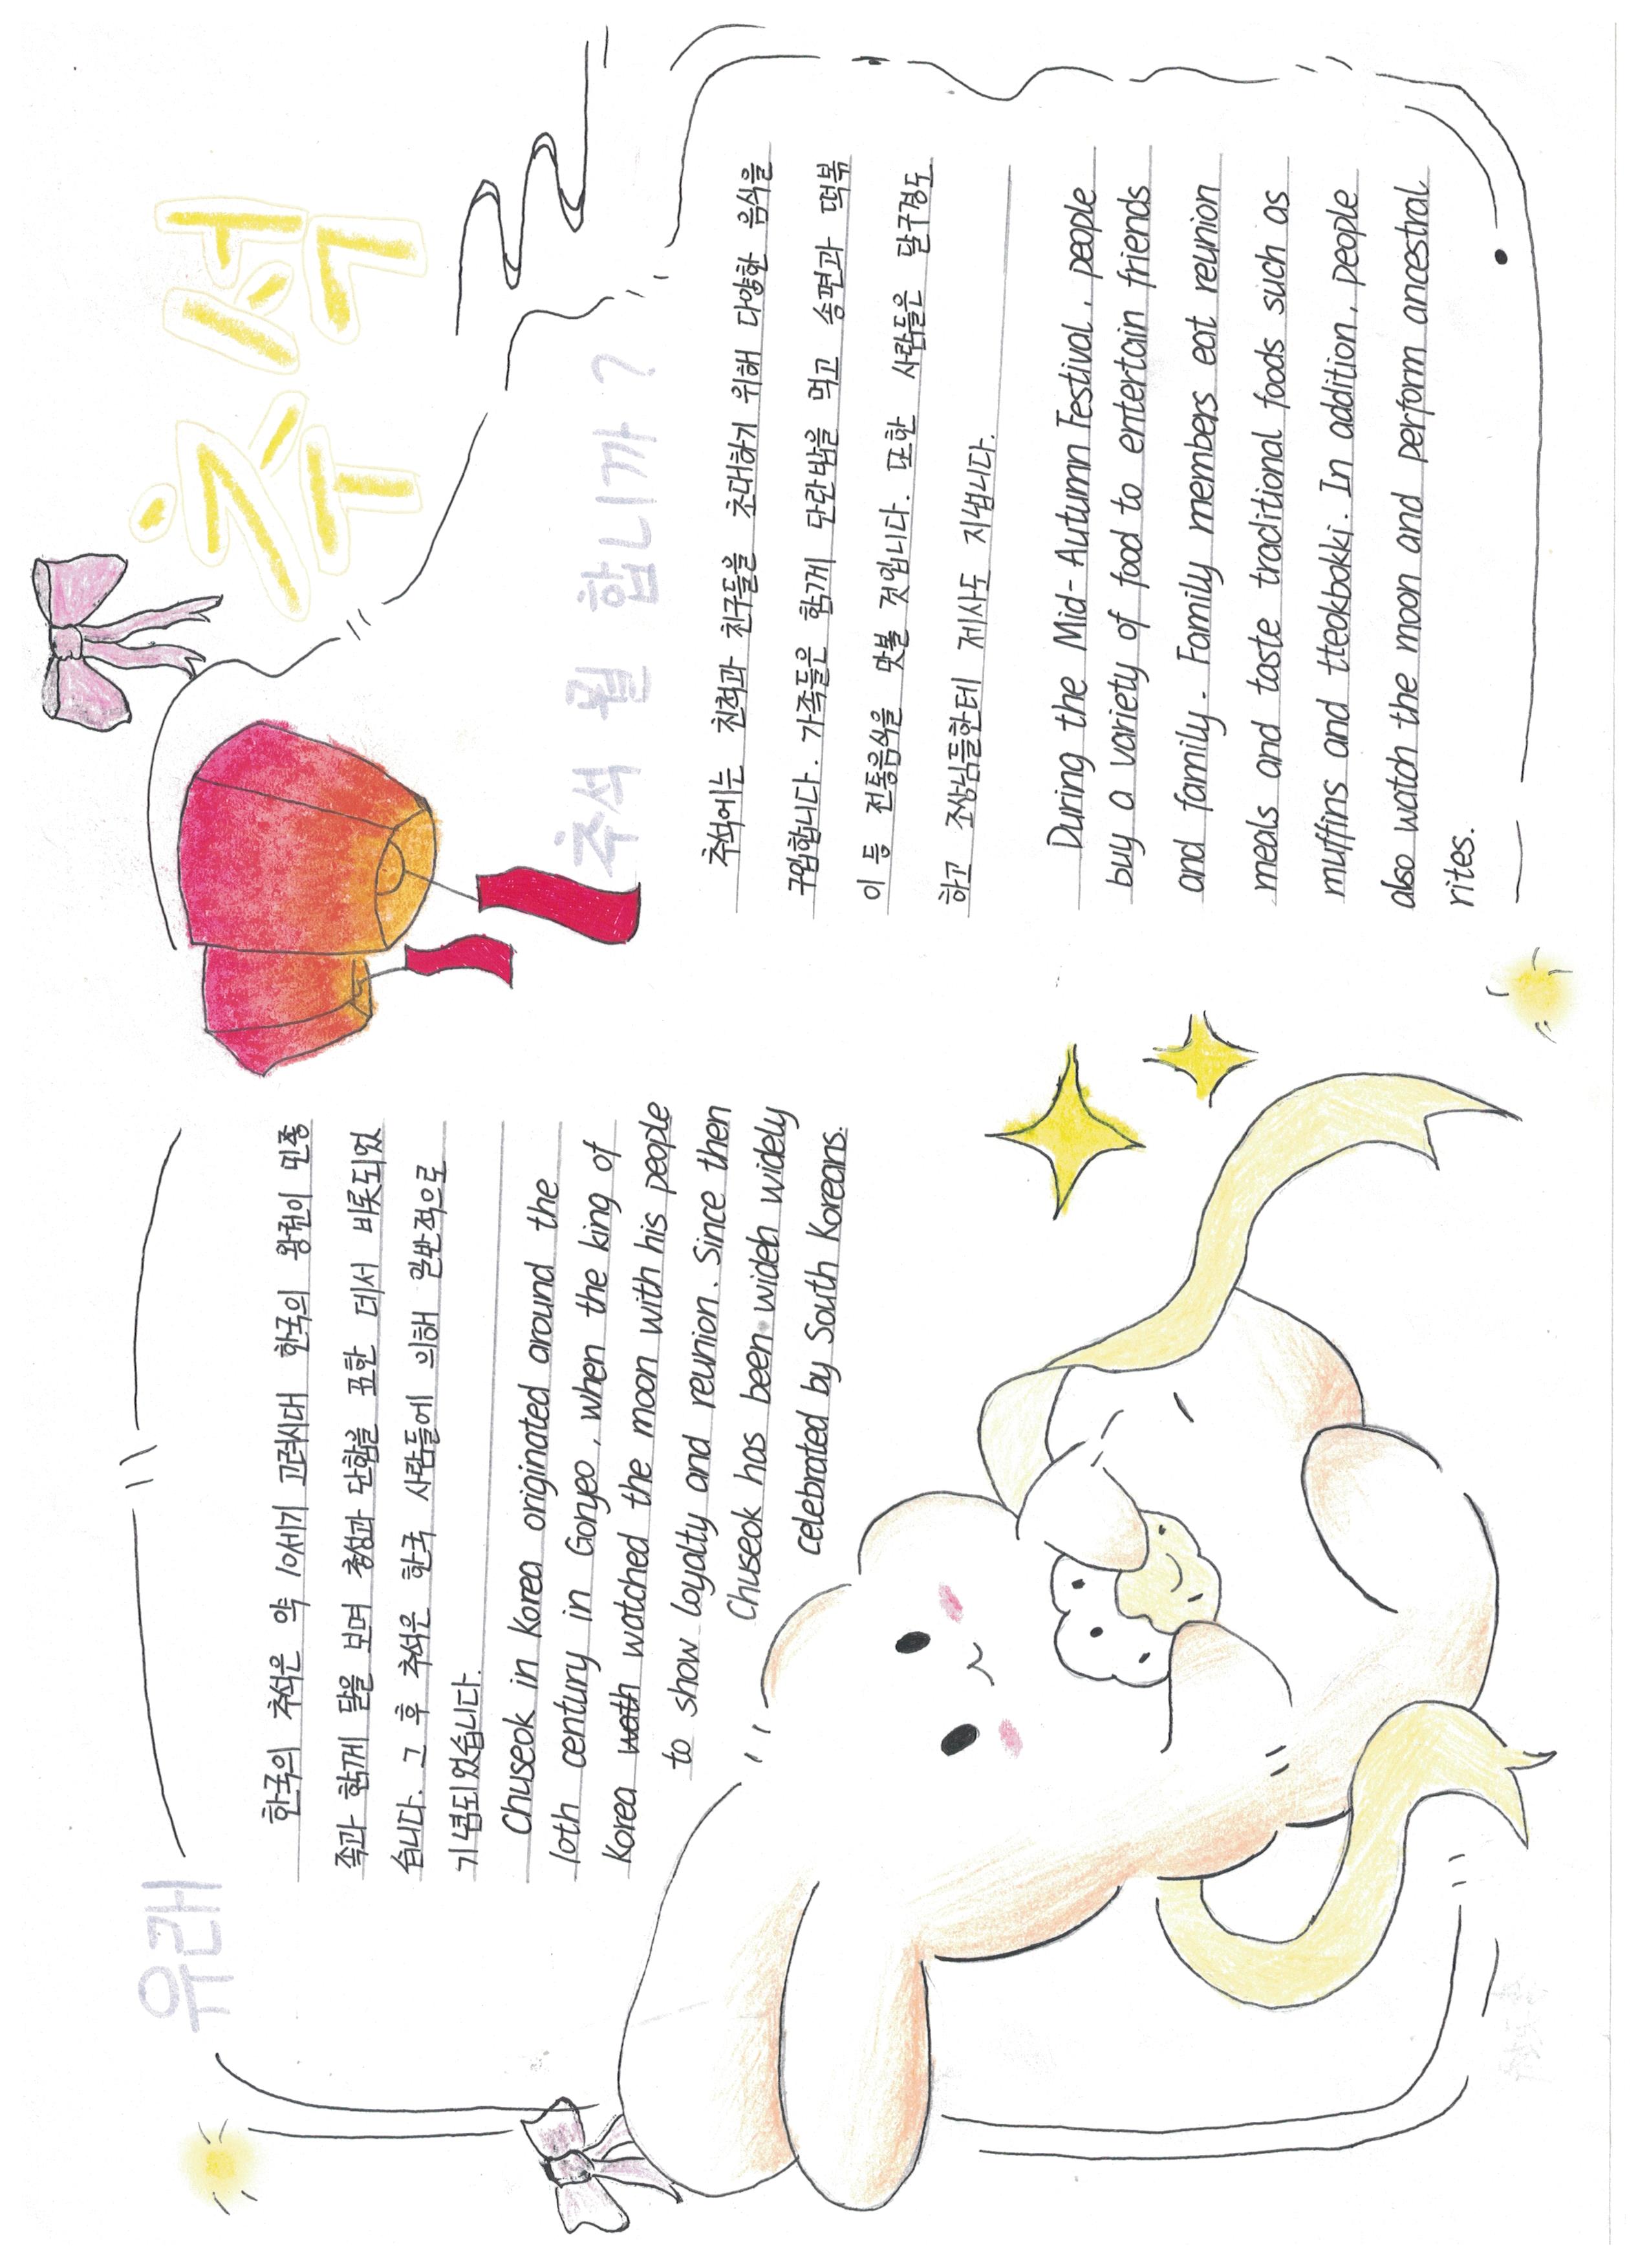 추석
유래
한국의 추석은 약 10세기 고려시대 한국의 왕권이 민종
족과 함께 달을 보며 충성과 단합을 표한 데서 비롯되었
습니다. 그 후 추석은 한국 사람들에 의해 일반적으로
기념되었습니다.
Chuseok in Korea originated around the
10th century in Goryeo, when the king of
Korea watched the moon with his people
to show loyalty and reunion. Since then
Chuseok has been widely
celebrated by South Koreans.
추석 뭘 합니까?
추석에는 친척과 친구들을 초대하기 위해 다양한 음식을
구입합니다. 가족들은 함께 단란밥을 먹고 송편과 떡볶
이 등 전통음식을 맛볼 것입니다. 또한 사람들은 달구경도
하고 조상님들한테 제사도 지냅니다.
During the Mid-Autumn Festival, people
buy a variety of food to entertain friends
and family. Family members eat reunion
meals and taste traditional foods such as
muffins and tteokbokki. In addition, people
also watch the moon and perform ancestral
rites.